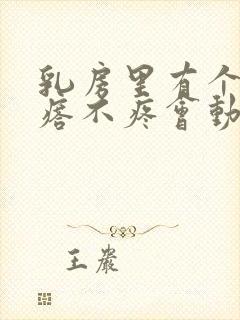 乳房里有个
痞不疼會動
王嚴